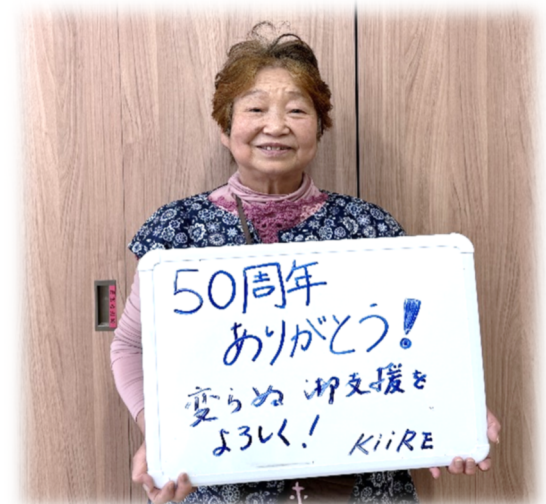 50周年
ありがとう!
変らぬ御支援を
よろしく! KiiRE